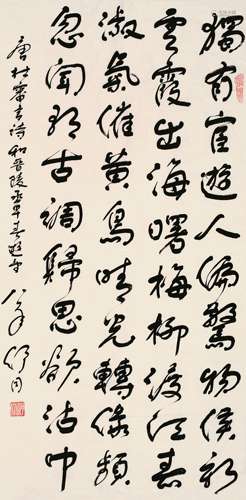 獨有宦遊人偏驚物候新
雲霞出海曙梅柳渡江春
淑氣催黃鳥晴光轉綠頻
忽聞歌古調歸思欲沾巾
唐杜審言诗和晉陵丞早春遊望
舒同